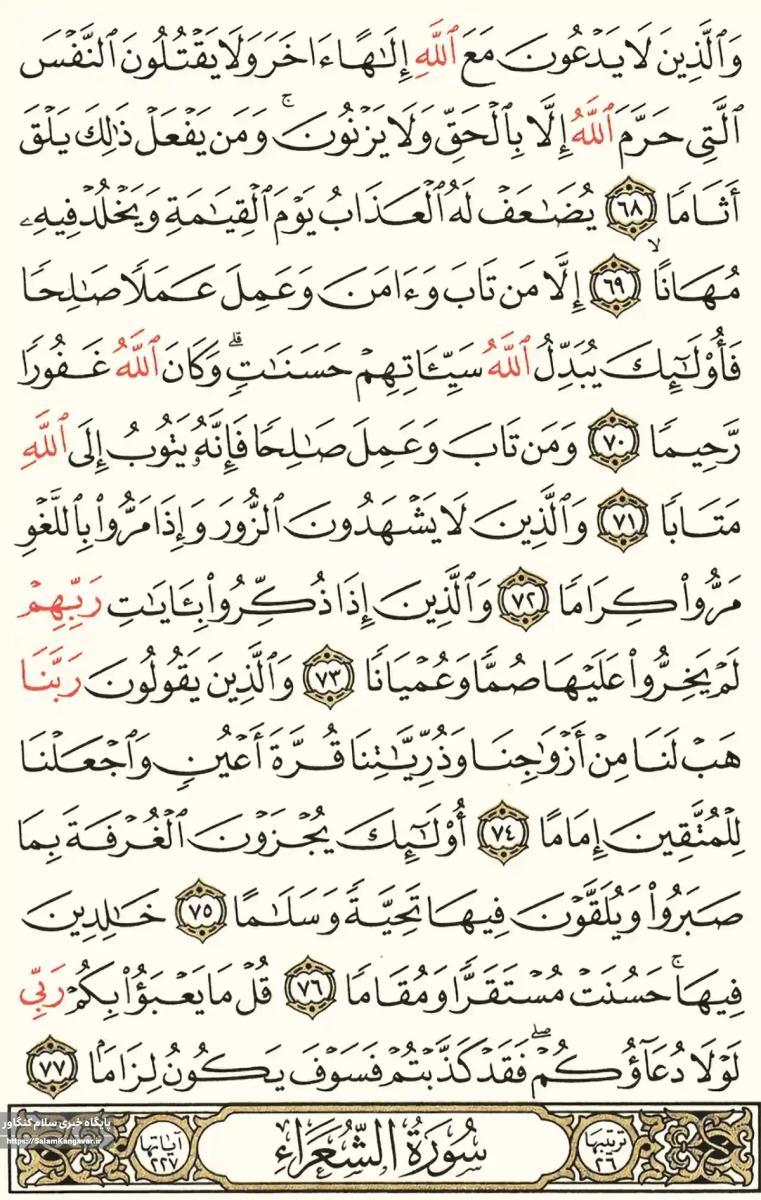 وَٱلَّذِينَ لَا يَدْعُونَ مَعَ ٱللَّهِ إِلَٰهًا ءَاخَرَ وَلَا يَقْتُلُونَ ٱلنَّفْسَ
ٱلَّتِي حَرَّمَ ٱللَّهُ إِلَّا بِٱلْحَقِّ وَلَا يَزْنُونَ ۚ وَمَن يَفْعَلْ ذَٰلِكَ يَلْقَ
أَثَامًا ٦٨ يُضَٰعَفْ لَهُ ٱلْعَذَابُ يَوْمَ ٱلْقِيَٰمَةِ وَيَخْلُدْ فِيهِۦ
مُهَانًا ٦٩ إِلَّا مَن تَابَ وَءَامَنَ وَعَمِلَ عَمَلًا صَٰلِحًا
فَأُو۟لَٰٓئِكَ يُبَدِّلُ ٱللَّهُ سَيِّـَٔاتِهِمْ حَسَنَٰتٍ ۗ وَكَانَ ٱللَّهُ غَفُورًا
رَّحِيمًا ٧٠ وَمَن تَابَ وَعَمِلَ صَٰلِحًا فَإِنَّهُۥ يَتُوبُ إِلَى ٱللَّهِ
مَتَابًا ٧١ وَٱلَّذِينَ لَا يَشْهَدُونَ ٱلزُّورَ وَإِذَا مَرُّوا۟ بِٱللَّغْوِ
مَرُّوا۟ كِرَامًا ٧٢ وَٱلَّذِينَ إِذَا ذُكِّرُوا۟ بِـَٔايَٰتِ رَبِّهِمْ
لَمْ يَخِرُّوا۟ عَلَيْهَا صُمًّا وَعُمْيَانًا ٧٣ وَٱلَّذِينَ يَقُولُونَ رَبَّنَا
هَبْ لَنَا مِنْ أَزْوَٰجِنَا وَذُرِّيَّٰتِنَا قُرَّةَ أَعْيُنٍ وَٱجْعَلْنَا
لِلْمُتَّقِينَ إِمَامًا ٧٤ أُو۟لَٰٓئِكَ يُجْزَوْنَ ٱلْغُرْفَةَ بِمَا
صَبَرُوا۟ وَيُلَقَّوْنَ فِيهَا تَحِيَّةً وَسَلَٰمًا ٧٥ خَٰلِدِينَ
فِيهَا ۚ حَسُنَتْ مُسْتَقَرًّا وَمُقَامًا ٧٦ قُلْ مَا يَعْبَؤُا۟ بِكُمْ رَبِّي
لَوْلَا دُعَآؤُكُمْ ۖ فَقَدْ كَذَّبْتُمْ فَسَوْفَ يَكُونُ لِزَامًۢا ٧٧
ترتيبها ٢٦ سُورَةُ الشُّعَرَاءِ آياتها ٢٢٧
پایگاه خبری سلام کنگاور
https://SalamKangavar.ir